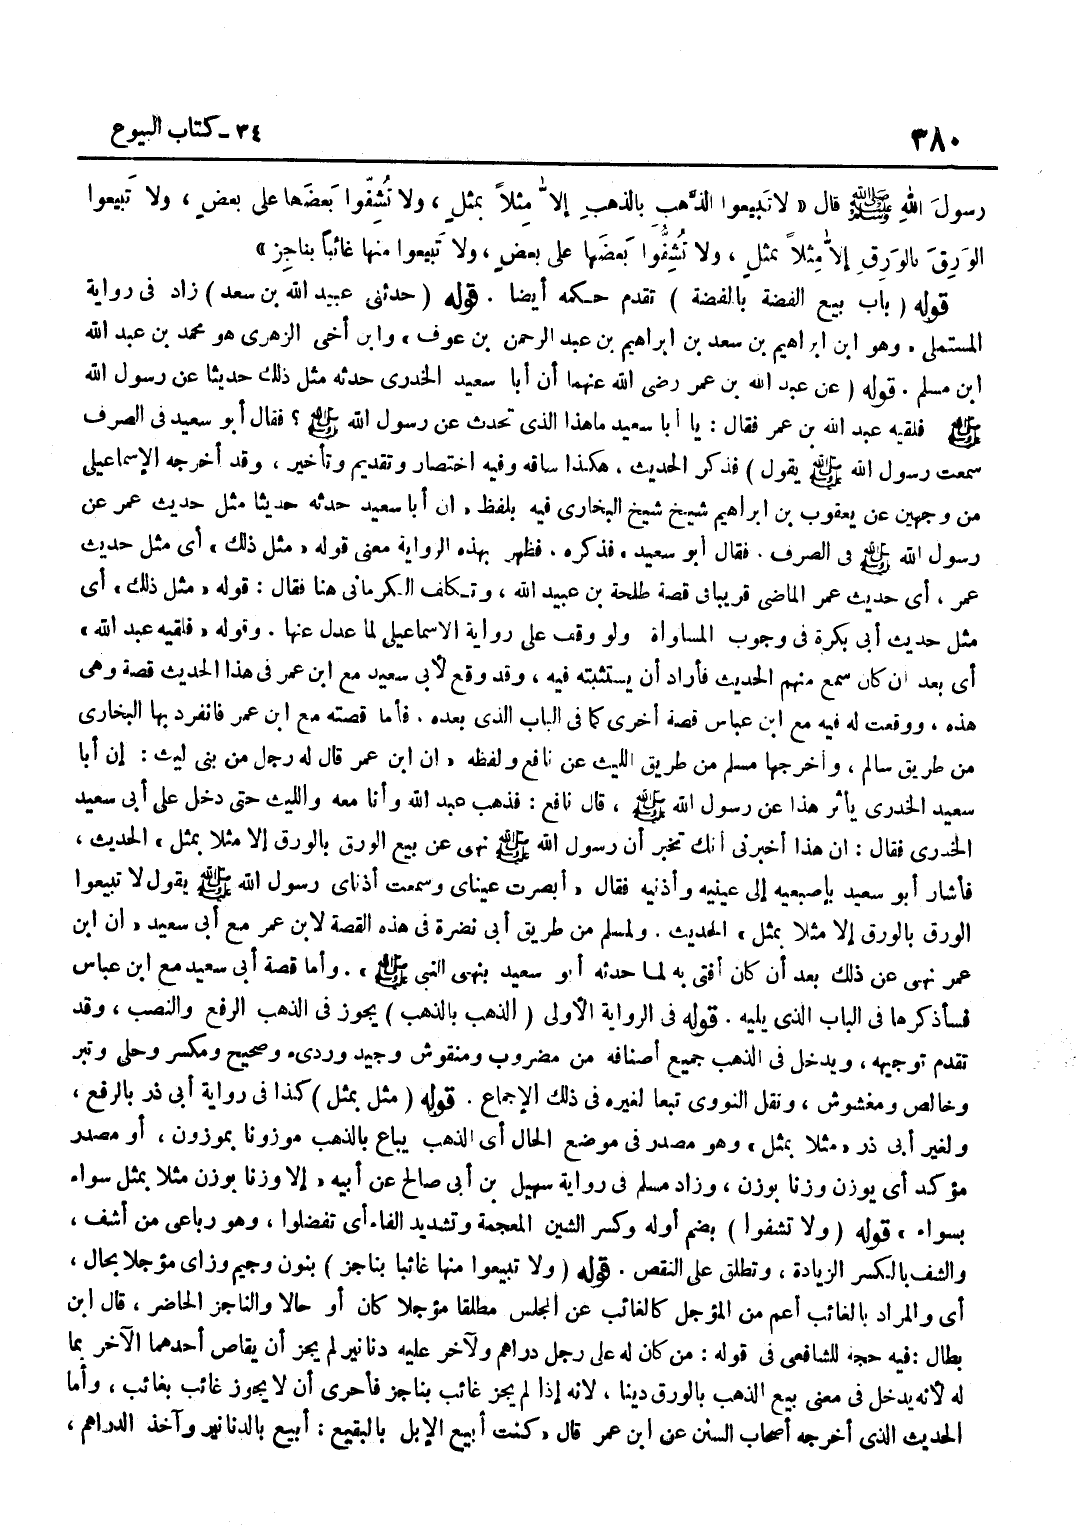 ٣٨٠ ٣٤ - كتاب البيوع
رسولَ اللهِ ﷺ قال « لا تَبيعوا الذَّهبِ بالذهبِ إلاّ مِثلاً بمثلٍ ، ولا تُشِفّوا بَعضَها على بعضٍ ، ولا تَبيعوا
الوَرِقَ بالوَرِقِ إلاّ مِثلاً بمثلٍ ، ولا تُشِفُّوا بَعضَها على بعضٍ ، ولا تَبيعوا منها غائباً بناجِزٍ »
قوله ( باب بيع الفضة بالفضة ) تقدم حكمه أيضا . قوله ( حدثنى عبيد الله بن سعد ) زاد فى رواية
المستملى ، وهو ابن ابراهيم بن سعد بن ابراهيم بن عبد الرحمن بن عوف ، وابن أخى الزهرى هو محمد بن عبد الله
ابن مسلم . قوله ( عن عبد الله بن عمر رضى الله عنهما أن أبا سعيد الخدرى حدثه مثل ذلك حديثا عن رسول الله
ﷺ فلقيه عبد الله بن عمر فقال : يا أبا سعيد ماهذا الذى تحدث عن رسول الله ﷺ ؟ فقال أبو سعيد فى الصرف
سمعت رسول الله ﷺ يقول ) فذكر الحديث ، هكذا ساقه وفيه اختصار وتقديم وتأخير ، وقد أخرجه الإسماعيلى
من وجهين عن يعقوب بن ابراهيم شيخ شيخ البخارى فيه بلفظ « ان أبا سعيد حدثه حديثا مثل حديث عمر عن
رسول الله ﷺ فى الصرف . فقال أبو سعيد ، فذكره . فظهر بهذه الرواية معنى قوله « مثل ذلك » أى مثل حديث
عمر ، أى حديث عمر الماضى قريبا فى قصة طلحة بن عبيد الله ، وتكلف الكرمانى هنا فقال : قوله « مثل ذلك » أى
مثل حديث أبى بكرة فى وجوب المساواة ولو وقف على رواية الاسماعيلى لما عدل عنها . وقوله « فلقيه عبد الله »
أى بعد أن كان سمع منهم الحديث فأراد أن يستثبته فيه ، وقد وقع لأبى سعيد مع ابن عمر فى هذا الحديث قصة وهى
هذه ، ووقعت له فيه مع ابن عباس قصة أخرى كما فى الباب الذى بعده . فأما قصته مع ابن عمر فانفرد بها البخارى
من طريق سالم ، وأخرجها مسلم من طريق الليث عن نافع ولفظه « ان ابن عمر قال له رجل من بنى ليث : إن أبا
سعيد الخدرى يأثر هذا عن رسول الله ﷺ ، قال نافع : فذهب عبد الله وأنا معه والليث حتى دخل على أبى سعيد
الخدرى فقال : ان هذا أخبرنى أنك تخبر أن رسول الله ﷺ نهى عن بيع الورق بالورق إلا مثلا بمثل » الحديث ،
فأشار أبو سعيد بإصبعيه إلى عينيه وأذنيه فقال « أبصرت عيناى وسمعت أذناى رسول الله ﷺ يقول لا تبيعوا
الورق بالورق إلا مثلا بمثل » الحديث . ولمسلم من طريق أبى نضرة فى هذه القصة لابن عمر مع أبى سعيد « أن ابن
عمر نهى عن ذلك بعد أن كان أفتى به لما حدثه أبو سعيد بنهى النبى ﷺ » . وأما قصة أبى سعيد مع ابن عباس
فسأذكرها فى الباب الذى يليه . قوله فى الرواية الأولى ( الذهب بالذهب ) يجوز فى الذهب الرفع والنصب ، وقد
تقدم توجيهه ، ويدخل فى الذهب جميع أصنافه من مضروب ومنقوش وجيد وردىء وصحيح ومكسر وحلى وتبر
وخالص ومغشوش ، ونقل النووى تبعا لغيره فى ذلك الإجماع . قوله ( مثل بمثل ) كذا فى رواية أبى ذر بالرفع ،
ولغير أبى ذر « مثلا بمثل » وهو مصدر فى موضع الحال أى الذهب يباع بالذهب موزونا بموزون ، أو مصدر
مؤكد أى يوزن وزنا بوزن ، وزاد مسلم فى رواية سهيل بن أبى صالح عن أبيه « إلا وزنا بوزن مثلا بمثل سواء
بسواء » قوله ( ولا تشفوا ) بضم أوله وكسر الشين المعجمة وتشديد الفاء أى تفضلوا ، وهو رباعى من أشف ،
والشف بالكسر الزيادة ، وتطلق على النقص . قوله ( ولا تبيعوا منها غائبا بناجز ) بنون وجيم وزاى مؤجلا بحال ،
أى والمراد بالغائب أعم من المؤجل كالغائب عن المجلس مطلقا مؤجلا كان أو حالا والناجز الحاضر ، قال ابن
بطال : فيه حجة للشافعى فى قوله : من كان له على رجل دراهم ولآخر عليه دنانير لم يجز أن يقاص أحدهما الآخر بما
له لأنه يدخل فى معنى بيع الذهب بالورق دينا ، لانه إذا لم يجز غائب بناجز فأحرى أن لا يجوز غائب بغائب ، وأما
الحديث الذى أخرجه أصحاب السنن عن ابن عمر قال « كنت أبيع الإبل بالبقيع : أبيع بالدنانير وآخذ الدراهم ،